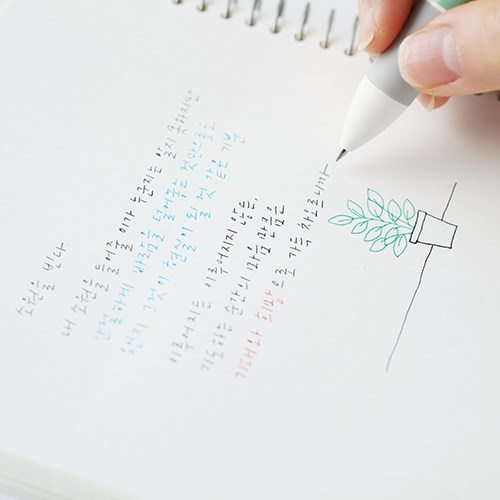 소원을 빈다
내 소원을 들어줄 이가 누군지는 알지 못하지만
간절하게 바람을 털어놓는 것만으로도
왠지 그것이 현실이 될 것 같은 기분
이루어지든 이루어지지 않든,
기도하는 순간의 마음 만큼은
기대와 희망으로 가득 차오르니까